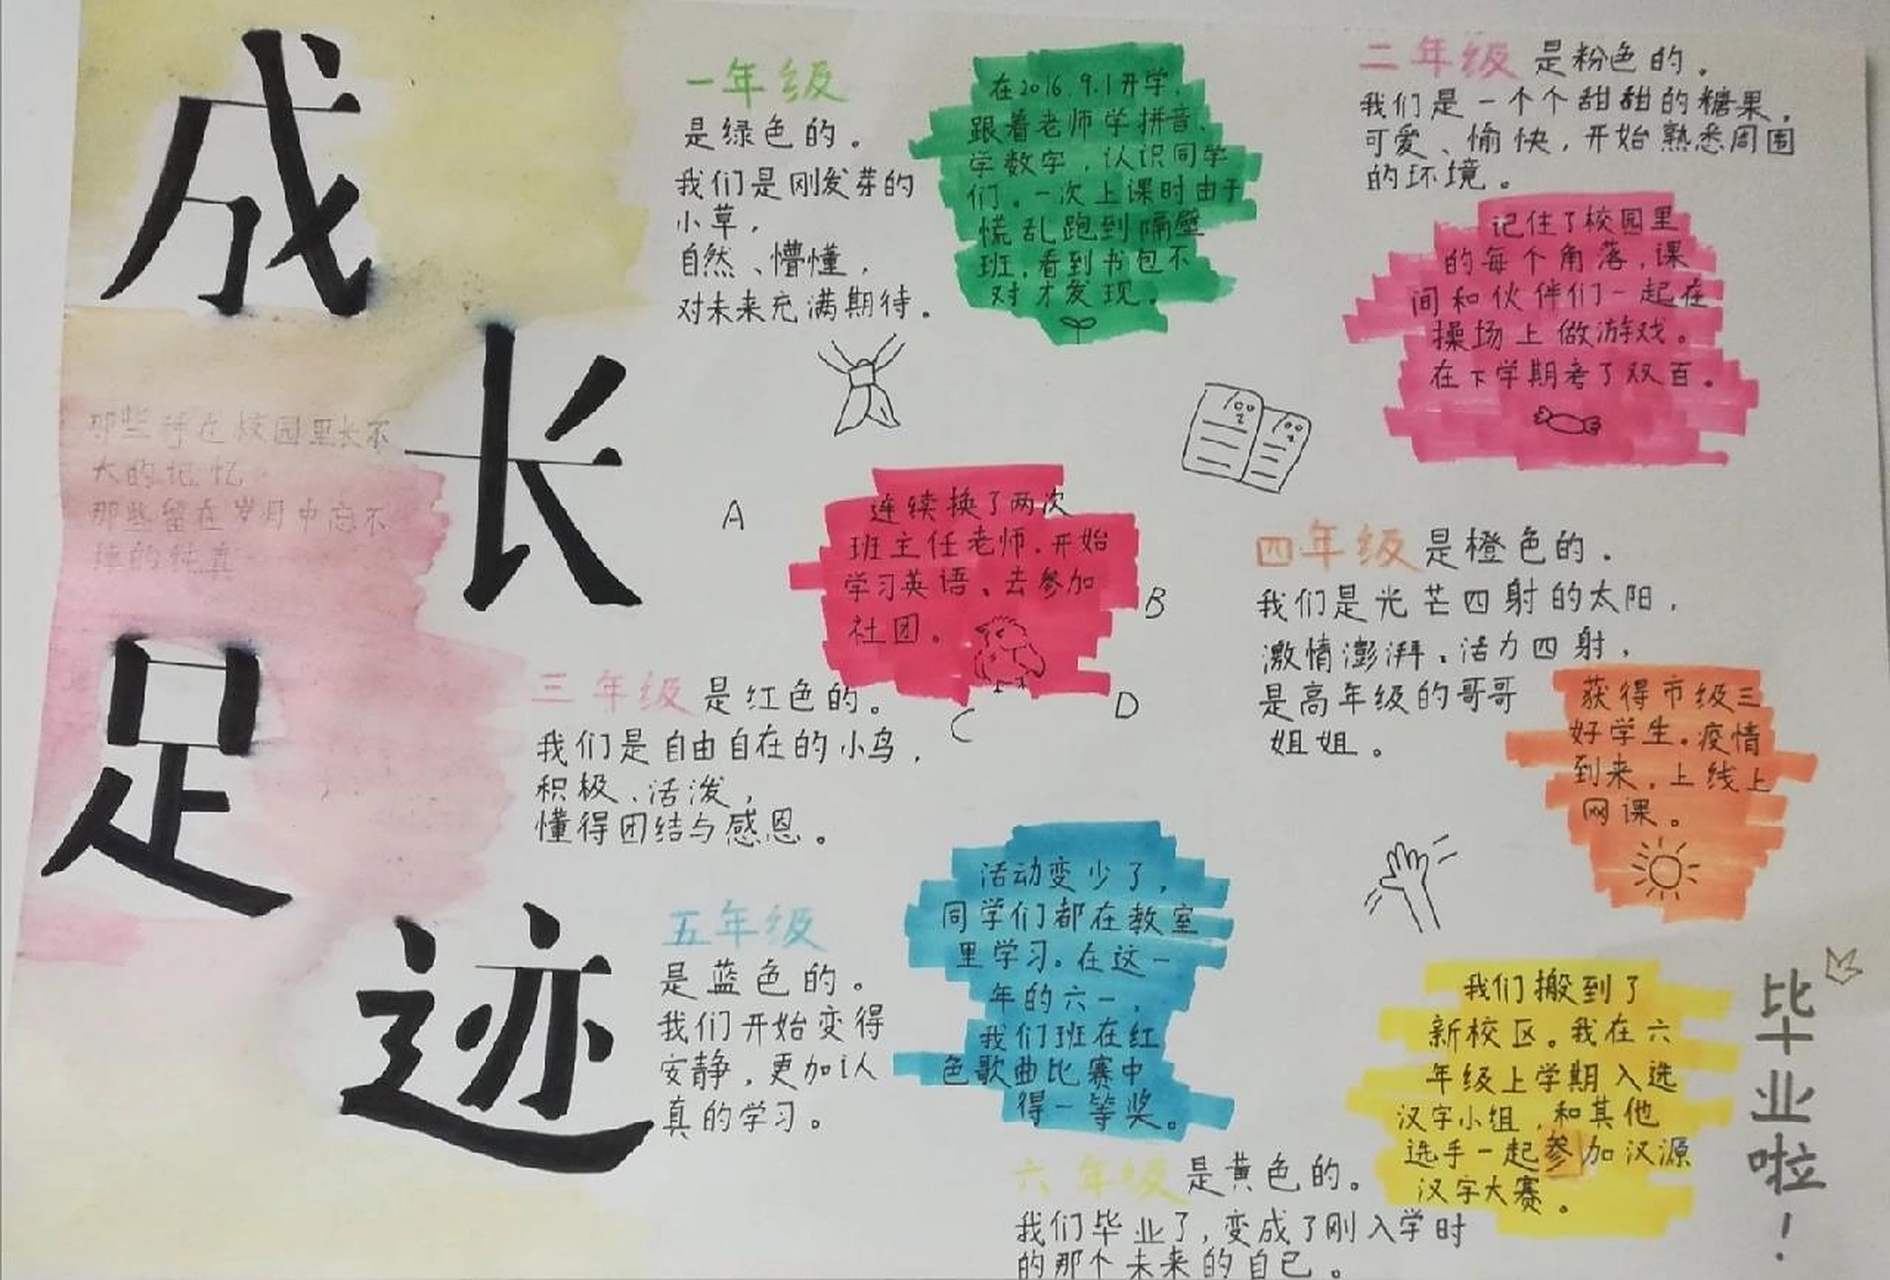 成
长
足
迹
那些种在校园里长不
大的记忆
那些留在岁月中忘不
掉的纯真
一年级
是绿色的。
我们是刚发芽的
小草，
自然、懵懂，
对未来充满期待。
在2016.9.1开学，
跟着老师学拼音、
学数字，认识同学
们。一次上课时由于
慌乱跑到隔壁
班，看到书包不
对才发现。
二年级是粉色的。
我们是一个个甜甜的糖果，
可爱、愉快，开始熟悉周围
的环境。
记住了校园里
的每个角落，课
间和伙伴们一起在
操场上做游戏。
在下学期考了双百。
A
连续换了两次
班主任老师，开始
学习英语、去参加
社团。
B
C
D
三年级是红色的。
我们是自由自在的小鸟，
积极、活泼，
懂得团结与感恩。
四年级是橙色的。
我们是光芒四射的太阳，
激情澎湃、活力四射，
是高年级的哥哥
姐姐。
获得市级三
好学生。疫情
到来，上线上
网课。
五年级
是蓝色的。
我们开始变得
安静，更加认
真的学习。
活动变少了，
同学们都在教室
里学习。在这一
年的六一，
我们班在红
色歌曲比赛中
得一等奖。
六年级是黄色的。
我们毕业了，变成了刚入学时
的那个未来的自己。
我们搬到了
新校区。我在六
年级上学期入选
汉字小组，和其他
选手一起参加汉源
汉字大赛。
毕
业
啦
！